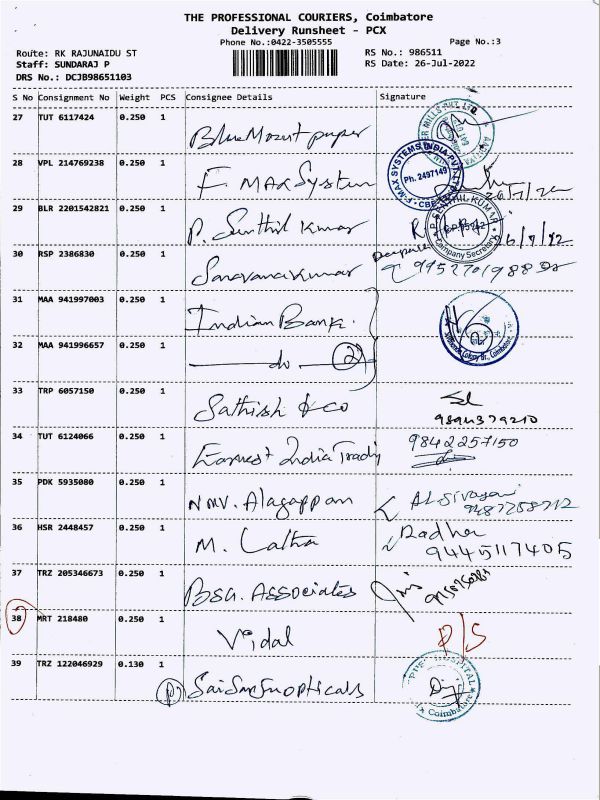 THE PROFESSIONAL COURIERS, Coimbatore
Delivery Runsheet - PCX
Phone No.:0422-3505555
Page No.:3
Route: RK RAJUNAIDU ST
RS No.: 986511
Staff: SUNDARAJ P
RS Date: 26-Jul-2022
DRS No.: DCJB98651103
S No Consignment No Weight PCS Consignee Details Signature
27 TUT 6117424 0.250 1
Blue Mount paper
28 VPL 214769238 0.250 1
F. MAX System
F-MAX SYSTEMS INDIA PVT. LTD
Ph. 2497149
29 BLR 2201542821 0.250 1
P. Senthil Kumar
P. SENTHIL KUMAR
Company Secretary
30 RSP 2386830 0.250 1
Saravanakumar
9952701988
31 MAA 941997003 0.250 1
Indian Bank.
32 MAA 941996657 0.250 1
do 2
33 TRP 6057150 0.250 1
Sathish & co
9894379210
34 TUT 6124066 0.250 1
Earnest India Trady
9842257150
35 PDK 5935080 0.250 1
NMV. Alagappan
36 HSR 2448457 0.250 1
M. Latha
Radha
9445117405
37 TRZ 205346673 0.250 1
BSG. Associates
38 MRT 218480 0.250 1
Vidal
P/S
39 TRZ 122046929 0.130 1
Coimbatore